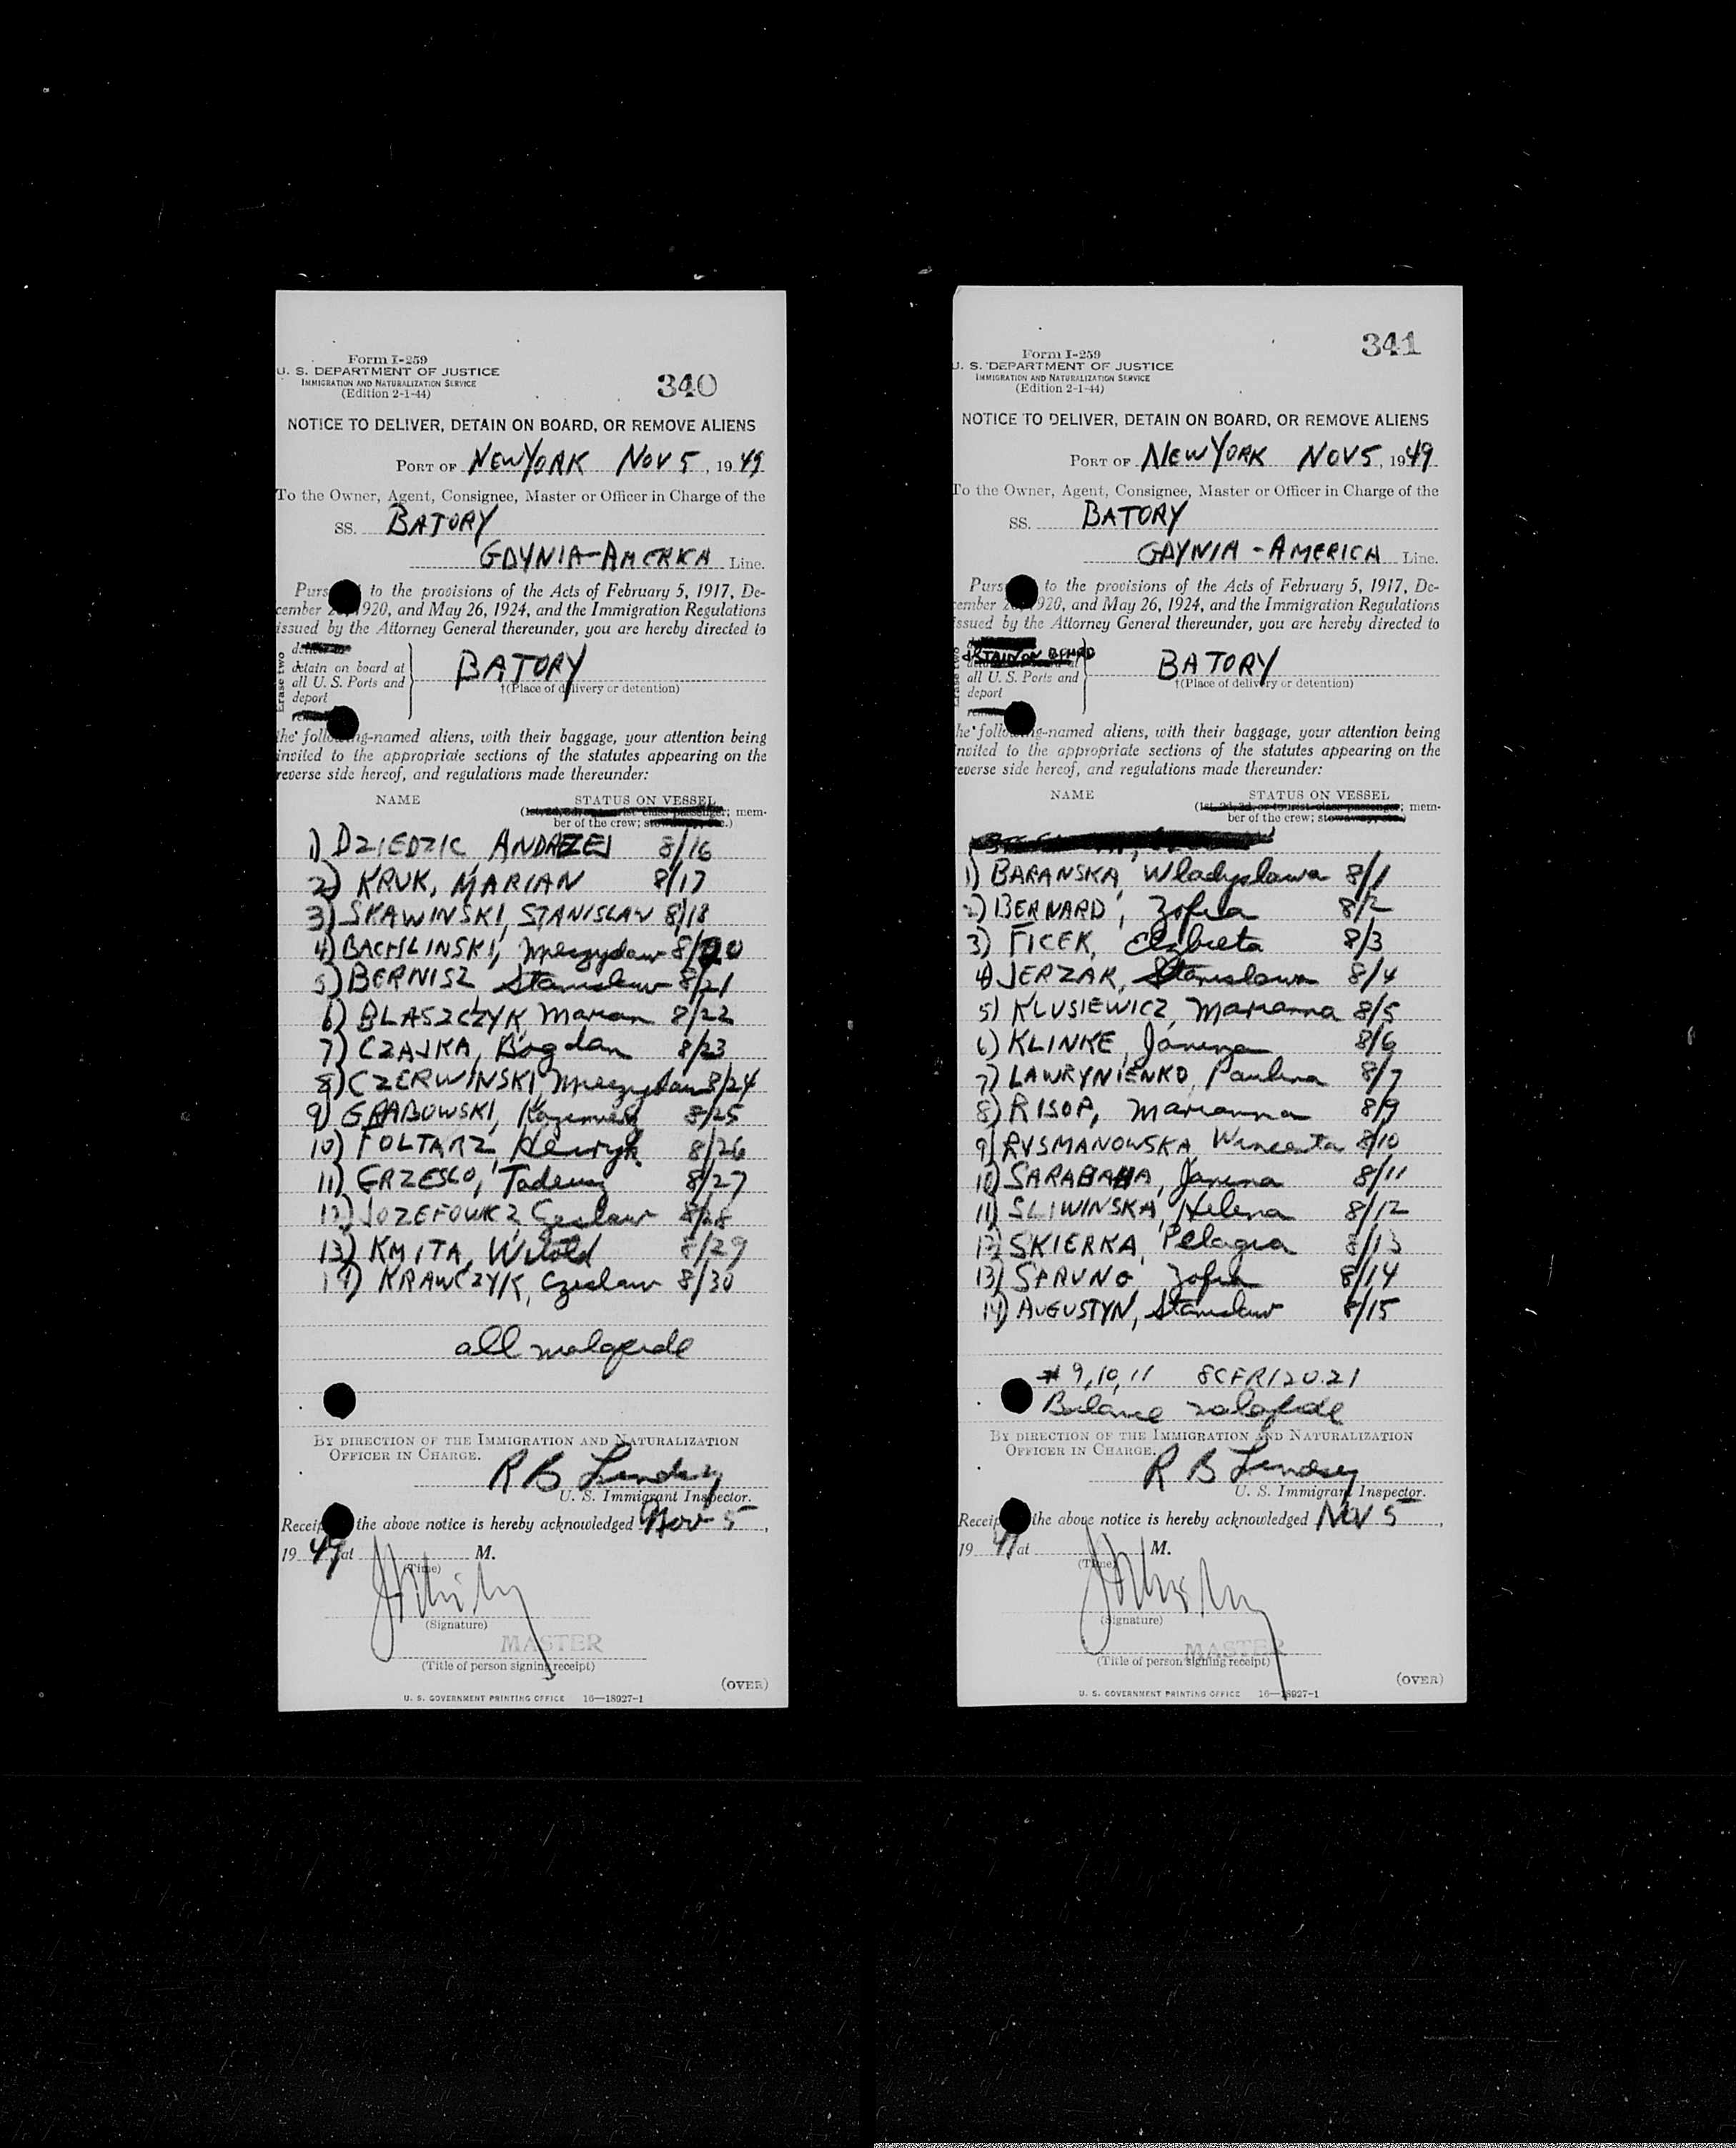 Form I-259
U. S. DEPARTMENT OF JUSTICE
IMMIGRATION AND NATURALIZATION SERVICE
(Edition 2-1-44)
340
NOTICE TO DELIVER, DETAIN ON BOARD, OR REMOVE ALIENS
PORT OF NEW YORK NOV 5, 1949
To the Owner, Agent, Consignee, Master or Officer in Charge of the
SS. BATORY
GDYNIA-AMERICA Line.
Purs to the provisions of the Acts of February 5, 1917, De-
cember 920, and May 26, 1924, and the Immigration Regulations
issued by the Attorney General thereunder, you are hereby directed to
Erase two
detain on board at
all U. S. Ports and
deport
BATORY
†(Place of delivery or detention)
the following-named aliens, with their baggage, your attention being
invited to the appropriate sections of the statutes appearing on the
reverse side hereof, and regulations made thereunder:
NAME STATUS ON VESSEL
(1st, 2d, 3d, or tourist-class passenger; mem-
ber of the crew; stowaway, etc.)
1) DZIEDZIC ANDRZEJ 8/16
2) KRUK, MARIAN 8/17
3) SKAWINSKI, STANISLAW 8/18
4) BACHLINSKI, Mieczyslaw 8/20
5) BERNISZ Stanislaw 8/21
6) BLASZCZYK, Marian 8/22
7) CZAJKA, Bogdan 8/23
8) CZERWINSKI, Mieczyslaw 8/24
9) GRABOWSKI, Kazimierz 8/25
10) FOLTARZ, Henryk 8/26
11) GRZESLO, Tadeusz 8/27
12) JOZEFOWICZ, Czeslaw 8/28
13) KMITA, Witold 8/29
14) KRAWCZYK, Czeslaw 8/30
all malafide
BY DIRECTION OF THE IMMIGRATION AND NATURALIZATION
OFFICER IN CHARGE.
R B Lindsey
U. S. Immigrant Inspector.
Receip the above notice is hereby acknowledged Nov 5,
1949 at M.
(Time)
(Signature)
MASTER
(Title of person signing receipt)
(OVER)
U. S. GOVERNMENT PRINTING OFFICE 16—18927-1
341
Form I-259
U. S. DEPARTMENT OF JUSTICE
IMMIGRATION AND NATURALIZATION SERVICE
(Edition 2-1-44)
NOTICE TO DELIVER, DETAIN ON BOARD, OR REMOVE ALIENS
PORT OF NEW YORK NOV 5, 1949
To the Owner, Agent, Consignee, Master or Officer in Charge of the
SS. BATORY
GDYNIA-AMERICA Line.
Purs to the provisions of the Acts of February 5, 1917, De-
cember 920, and May 26, 1924, and the Immigration Regulations
issued by the Attorney General thereunder, you are hereby directed to
Erase two
DETAIN ON BOARD
all U. S. Ports and
deport
BATORY
†(Place of delivery or detention)
the following-named aliens, with their baggage, your attention being
invited to the appropriate sections of the statutes appearing on the
reverse side hereof, and regulations made thereunder:
NAME STATUS ON VESSEL
(1st, 2d, 3d, or tourist-class passenger; mem-
ber of the crew; stowaway, etc.)
1) BARANSKA, Wladyslawa 8/1
2) BERNARD, Zofia 8/2
3) FICEK, Elzbieta 8/3
4) JERZAK, Stanislawa 8/4
5) KLUSIEWICZ, Marianna 8/5
6) KLINKE, Janina 8/6
7) LAWRYNIENKO, Paulina 8/7
8) RISOP, Marianna 8/9
9) RUSMANOWSKA, Wincenta 8/10
10) SARABAHA, Janina 8/11
11) SLIWINSKA, Helena 8/12
12) SKIERKA, Pelagia 8/13
13) SPRUNG Zofia 8/14
14) AUGUSTYN, Stanislaw 8/15
# 9, 10, 11 8CFR120.21
Balance malafide
BY DIRECTION OF THE IMMIGRATION AND NATURALIZATION
OFFICER IN CHARGE.
R B Lindsey
U. S. Immigrant Inspector.
Receip the above notice is hereby acknowledged Nov 5,
1949 at M.
(Time)
(Signature)
MASTER
(Title of person signing receipt)
(OVER)
U. S. GOVERNMENT PRINTING OFFICE 16—18927-1